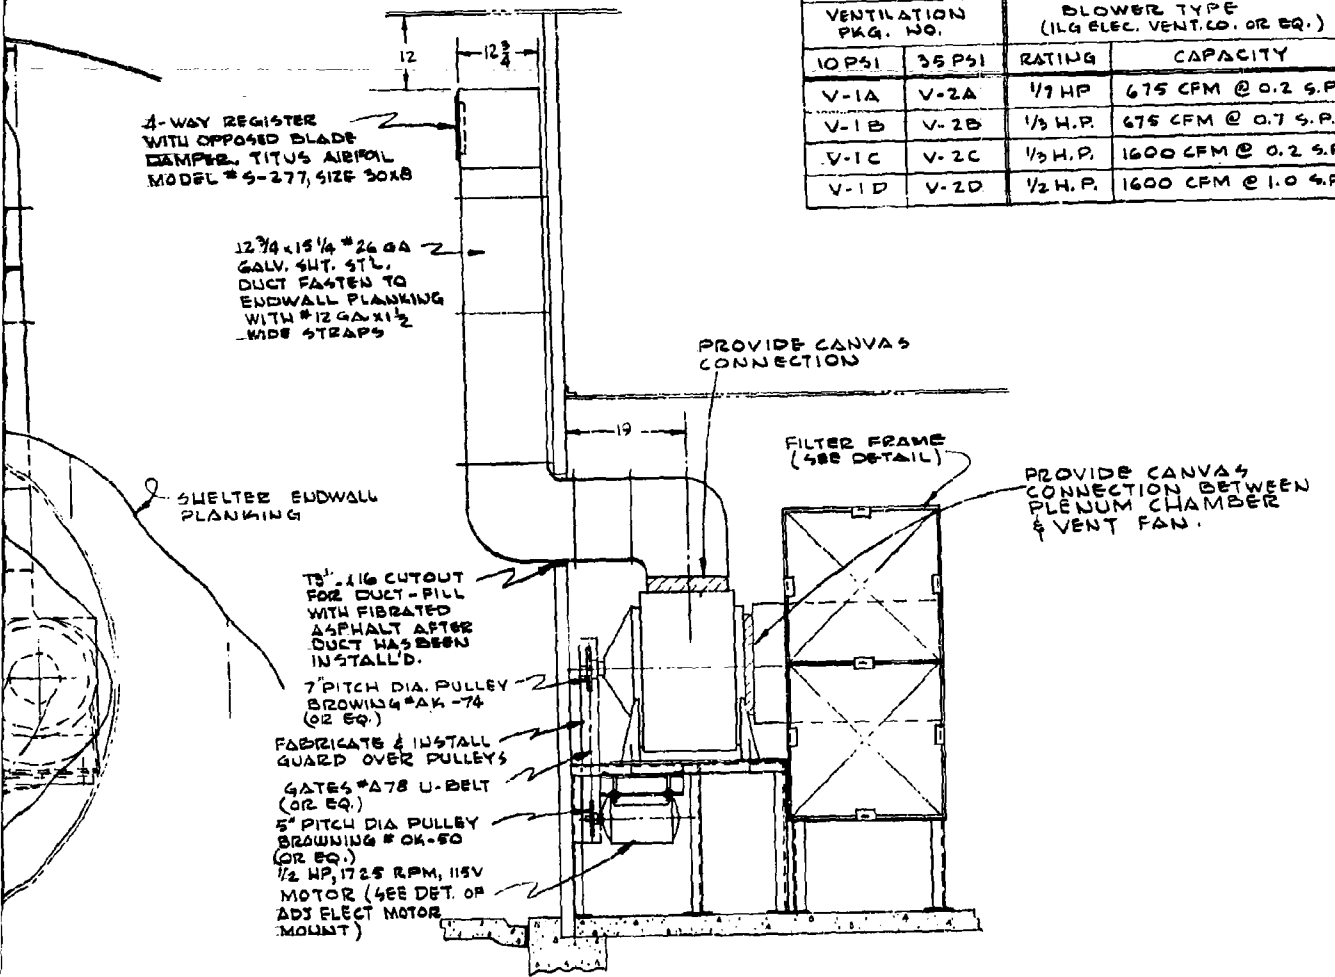 VENTILATION
PKG. NO.
BLOWER TYPE
(ILG ELEC. VENT. CO. OR EQ.)
10 PSI 35 PSI RATING CAPACITY
V-1A V-2A 1/7 HP 675 CFM @ 0.2 S.P.
V-1B V-2B 1/3 H.P. 675 CFM @ 0.7 S.P.
V-1C V-2C 1/3 H.P. 1600 CFM @ 0.2 S.P
V-1D V-2D 1/2 H.P. 1600 CFM @ 1.0 S.P
12
12 3/4
4-WAY REGISTER
WITH OPPOSED BLADE
DAMPER, TITUS AIRFOIL
MODEL # S-277, SIZE 30X8
12 3/4 x 15 1/4 # 26 GA
GALV. SHT. STL.
DUCT FASTEN TO
ENDWALL PLANKING
WITH #12 GA X 1 1/2
WIDE STRAPS
PROVIDE CANVAS
CONNECTION
19
FILTER FRAME
(SEE DETAIL)
PROVIDE CANVAS
CONNECTION BETWEEN
PLENUM CHAMBER
& VENT FAN.
SHELTER ENDWALL
PLANKING
X16 CUTOUT
FOR DUCT-FILL
WITH FIBRATED
ASPHALT AFTER
DUCT HAS BEEN
INSTALL'D.
7" PITCH DIA. PULLEY
BROWING #AK-74
(OR EQ.)
FABRICATE & INSTALL
GUARD OVER PULLEYS
GATES #A78 U-BELT
(OR EQ.)
5" PITCH DIA PULLEY
BROWNING # OK-50
(OR EQ.)
1/2 HP, 1725 RPM, 115V
MOTOR (SEE DET. OF
ADJ ELECT MOTOR
MOUNT)